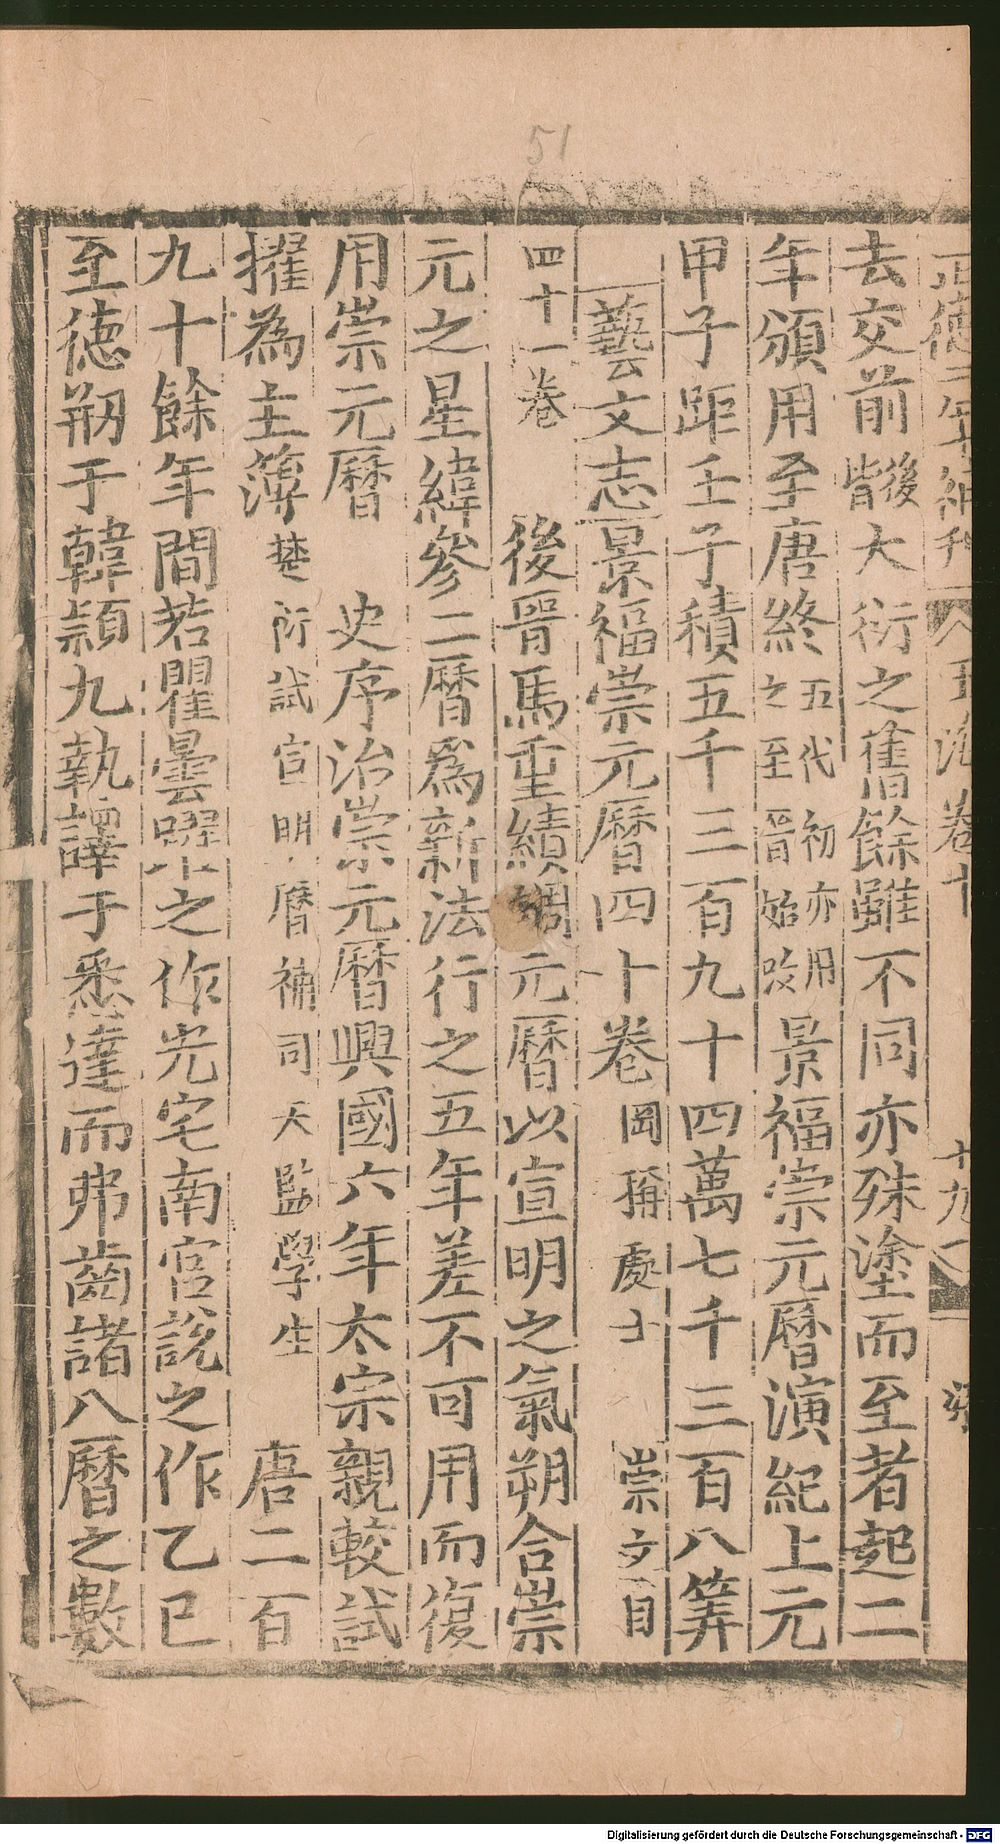 51
正德二年補刊 玉海卷十 十九
去交前後皆大衍之舊餘雖不同亦殊塗而至者起二
年頒用至唐終五代初亦用之至晉始改景福崇元曆演紀上元
甲子距壬子積五千三百九十四萬七千三百八筭
藝文志景福崇元曆四十卷岡稱處士 崇文目
四十一卷 後晉馬重績調元曆以宣明之氣朔合崇
元之星緯參二曆爲新法行之五年差不可用而復
用崇元曆 史序治崇元曆興國六年太宗親較試
擢為主簿楚衍試宣明曆補司天監學生 唐二百
九十餘年間若瞿曇羅之作光宅南宫說之作乙巳
至德刱于韓潁九執譯于悉達而弗齒諸八曆之數
Digitalisierung gefördert durch die Deutsche Forschungsgemeinschaft - DFG